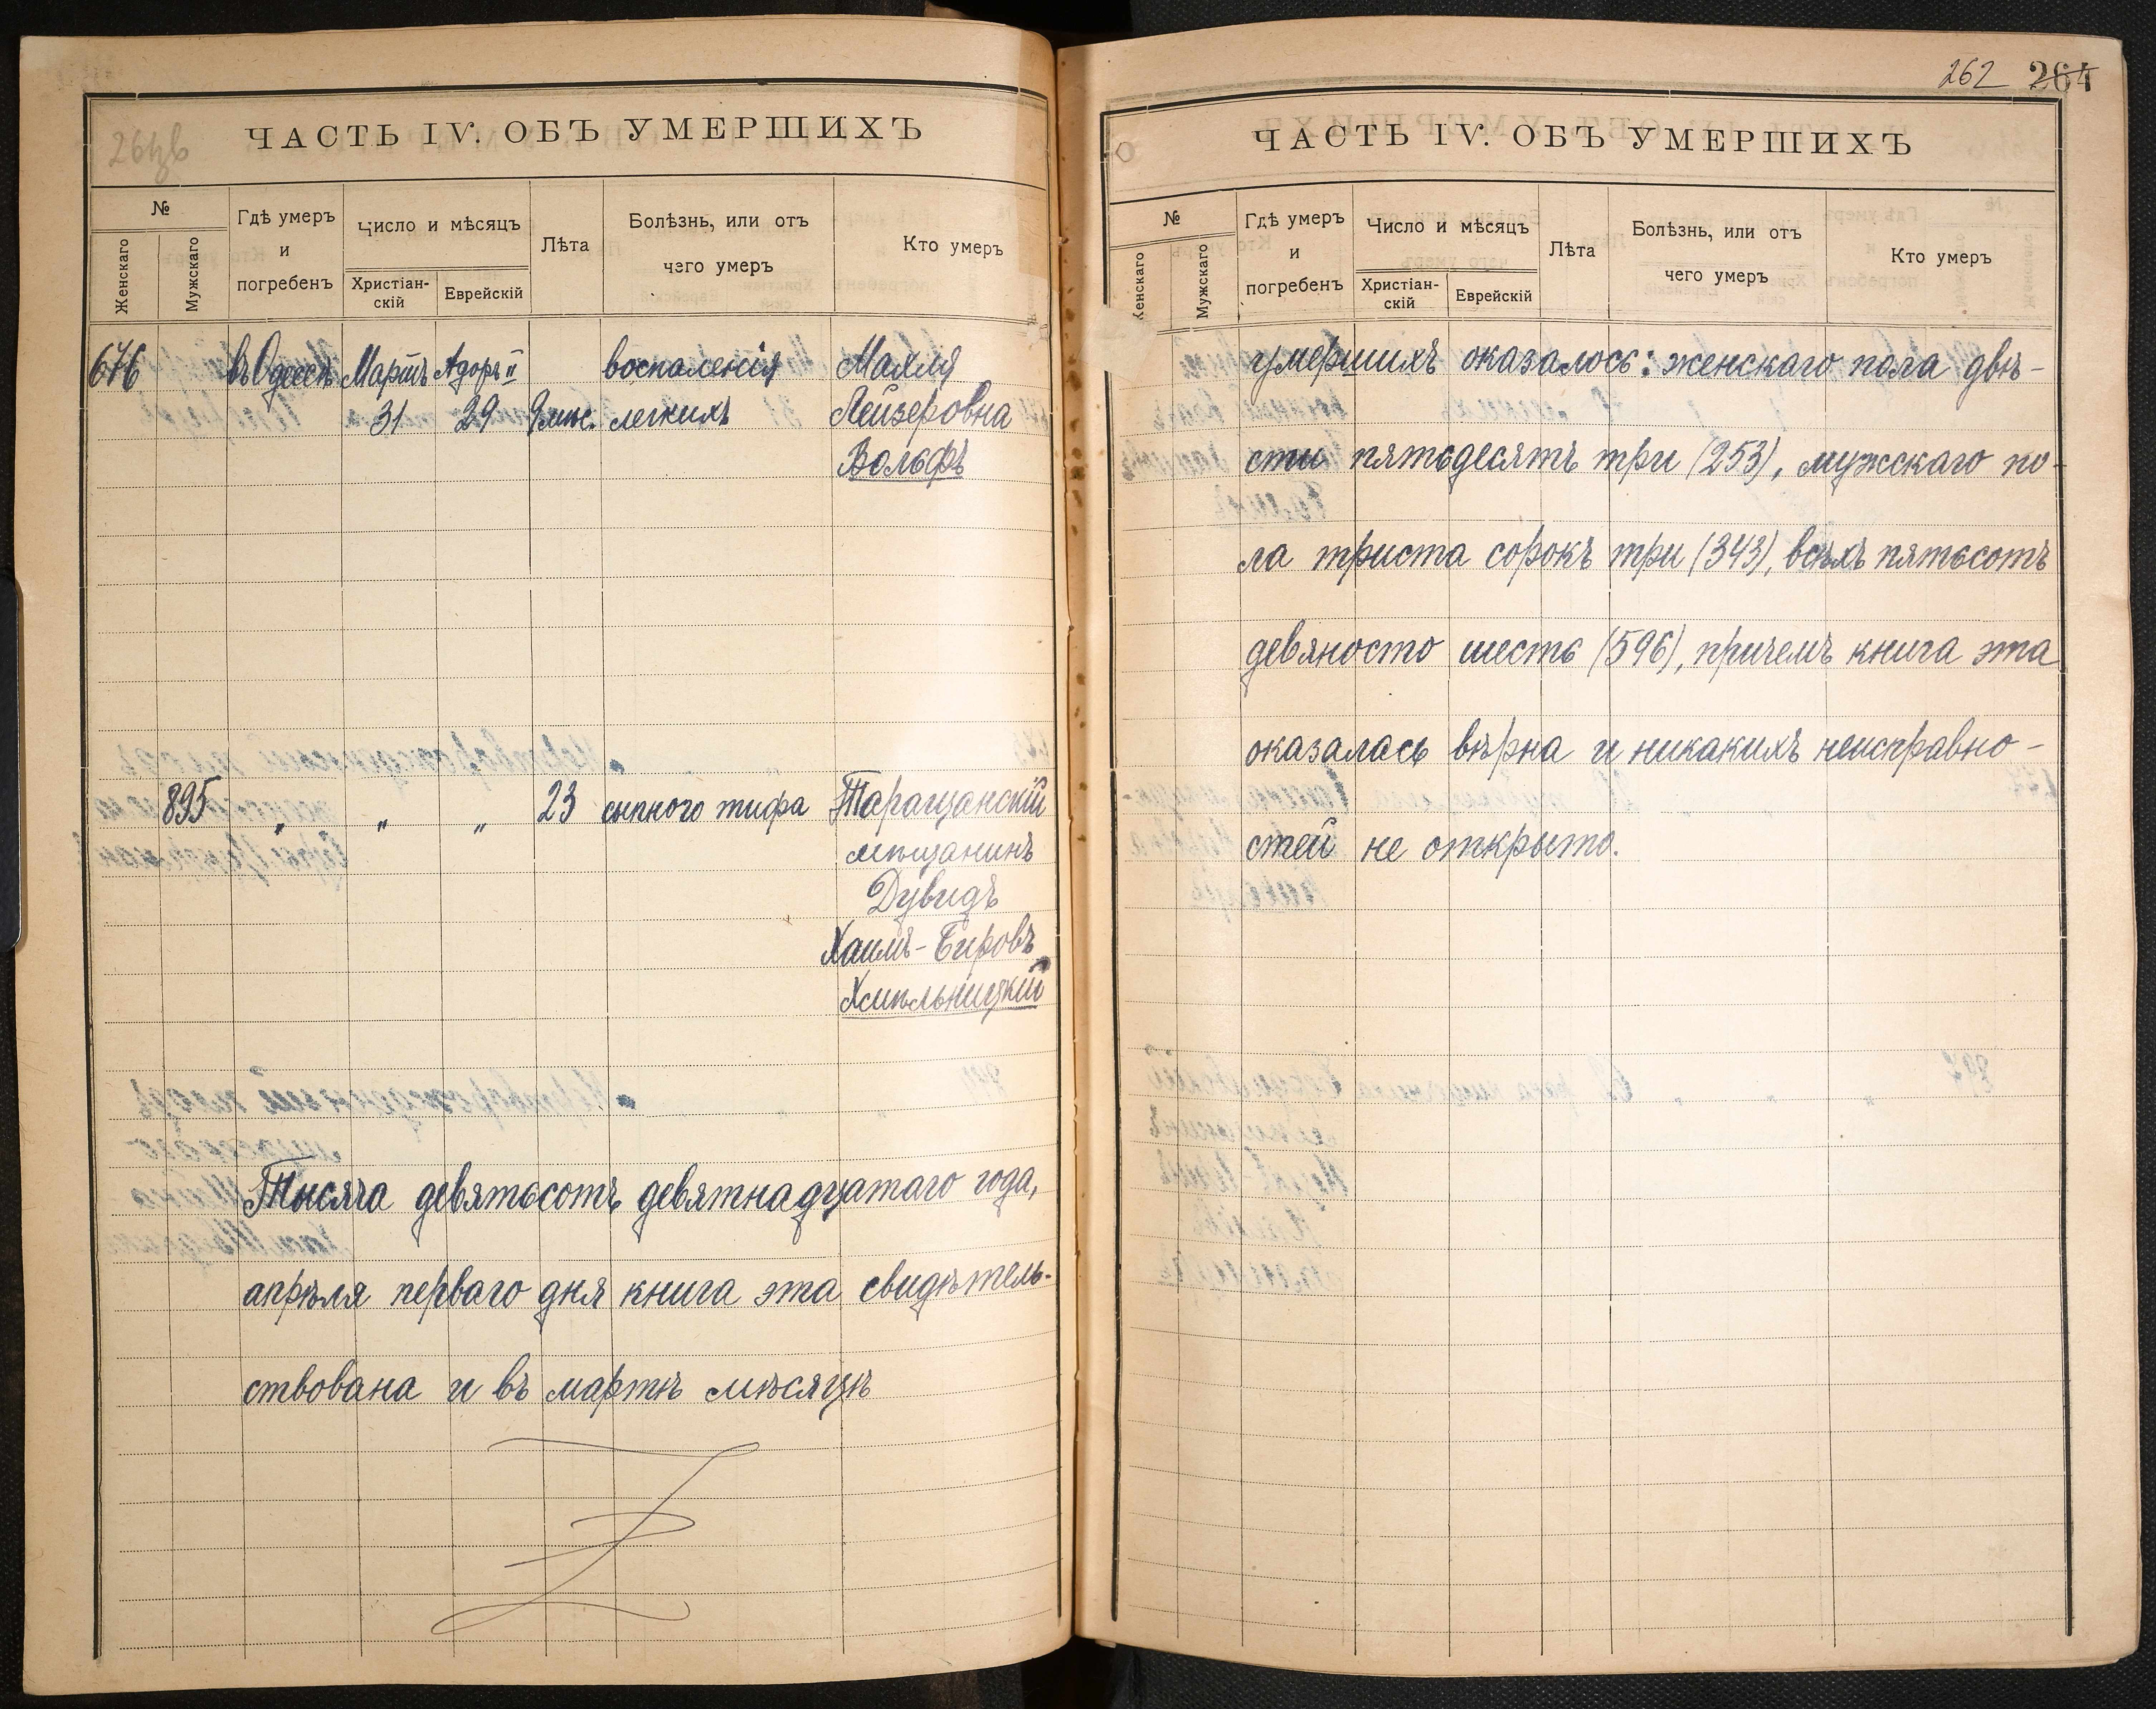 ЧАСТЬ IV. ОБЪ УМЕРШИХЪ
№
Женскаго
Мужскаго
Гдѣ умеръ
и
погребенъ
Число и мѣсяцъ
Христіан-
скій
Еврейскій
Лѣта
Болѣзнь, или отъ
чего умеръ
Кто умеръ
676 въ Одессѣ Мартъ Адоръ II воспаленія Маяля
31 29 9 мѣс. легкихъ Лейзеровна
Вольфъ
895 „ „ „ 23 сыпного тифа Таращанскій
мѣщанинъ
Дувидъ
Хаимъ-Беровъ
Хмѣльницкій
Тысяча девятьсотъ девятнадцатаго года,
апрѣля перваго дня книга эта свидѣтель-
ствована и въ мартѣ мѣсяцѣ
262 264
ЧАСТЬ IV. ОБЪ УМЕРШИХЪ
№
Женскаго
Мужскаго
Гдѣ умеръ
и
погребенъ
Число и мѣсяцъ
Христіан-
скій
Еврейскій
Лѣта
Болѣзнь, или отъ
чего умеръ
Кто умеръ
умершихъ оказалось: женскаго пола двѣ-
сти пятьдесятъ три (253), мужскаго по-
ла триста сорокъ три (343), всѣхъ пятьсотъ
девяносто шесть (596), причемъ книга эта
оказалась вѣрна и никакихъ неисправно-
стей не открыто.